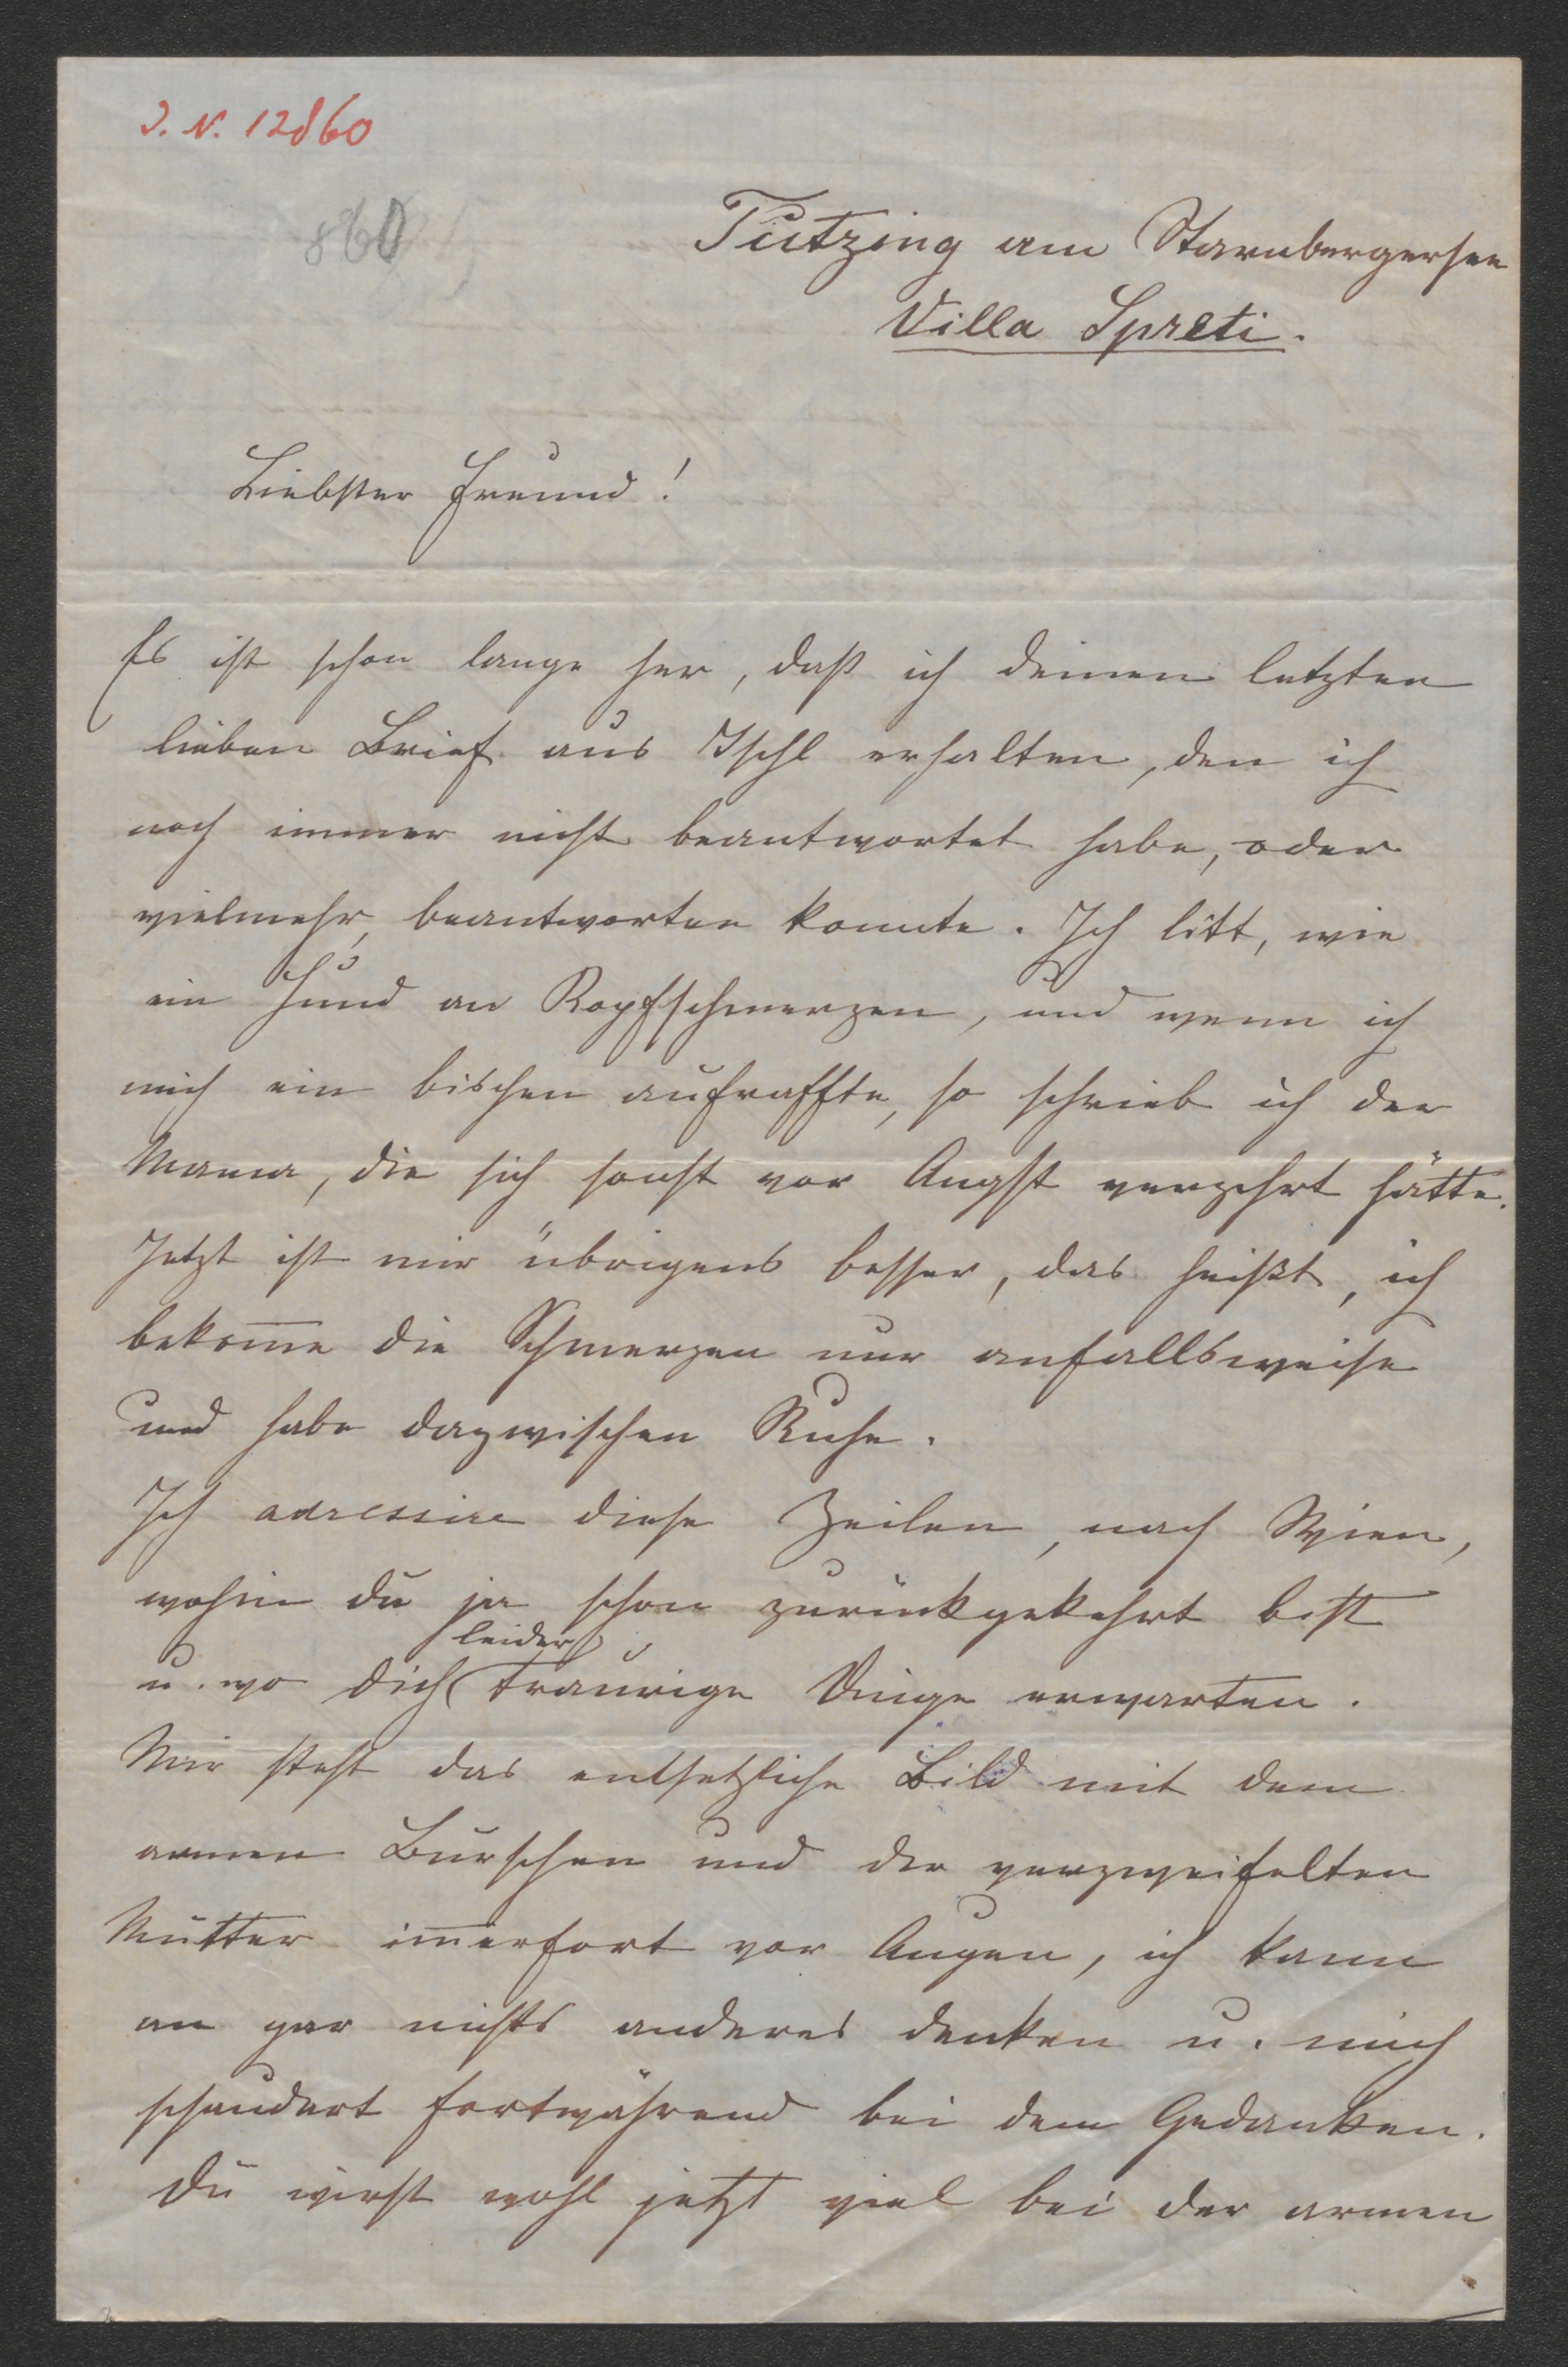 J. N. 12860
860
Tutzing am Starnbergersee
Villa Spreti.
Liebster Freund!
Es ist schon lange her, daß ich deinen letzten
lieben Brief aus Ischl erhalten, den ich
noch immer nicht beantwortet habe, oder
vielmehr, beantworten konnte. Ich litt, wie
ein Hund an Kopfschmerzen, und wenn ich
mich ein bischen aufraffte, so schrieb ich der
Mama, die sich sonst vor Angst verzehrt hätte.
Jetzt ist mir übrigens besser, das heißt, ich
bekom̅e die Schmerzen nur anfallsweise
und habe dazwischen Ruhe.
Ich adressire diese Zeilen, nach Wien,
wohin du ja schon zurückgekehrt bist
leider
u. wo dich traurige Dinge erwarten.
Mir steht das entsetzliche Bild mit dem
armen Burschen und der verzweifelten
Mutter im̅erfort vor Augen, ich kann
an gar nichts anderes denken u. mich
schaudert fortwährend bei dem Gedanken.
Du wirst wohl jetzt viel bei der armen